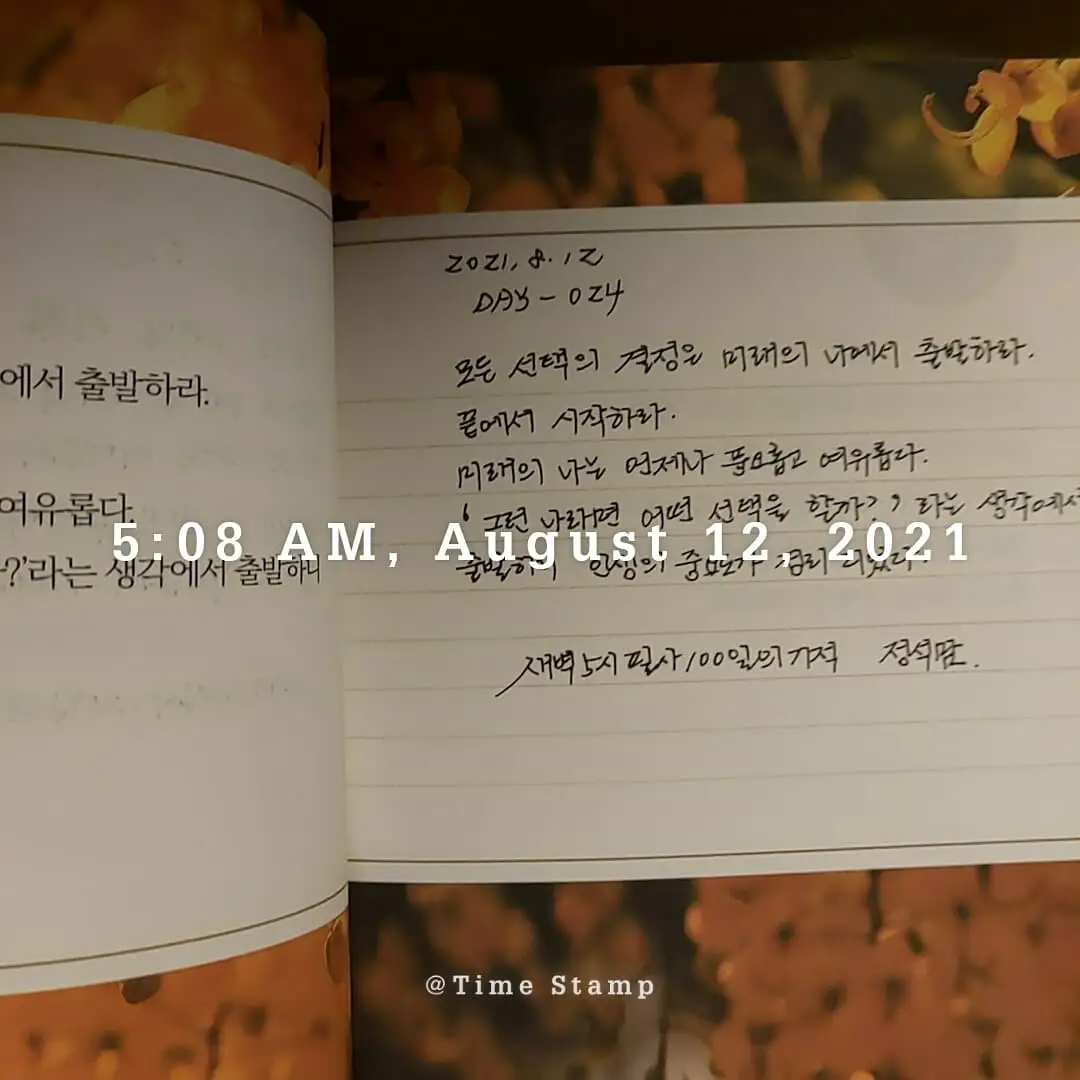 에서 출발하라.
여유롭다.
?'라는 생각에서 출발하니
2021. 8. 12
DAY - 024
모든 선택의 결정은 미래의 나에서 출발하라.
끝에서 시작하라.
미래의 나는 언제나 풍요롭고 여유롭다.
'그런 나라면 어떤 선택을 할까?' 라는 생각에서
출발하니 인생의 중요도가 정리 되었다.
5:08 AM, August 12, 2021
새벽 5시 필사 100일의 기적 정석
@Time Stamp